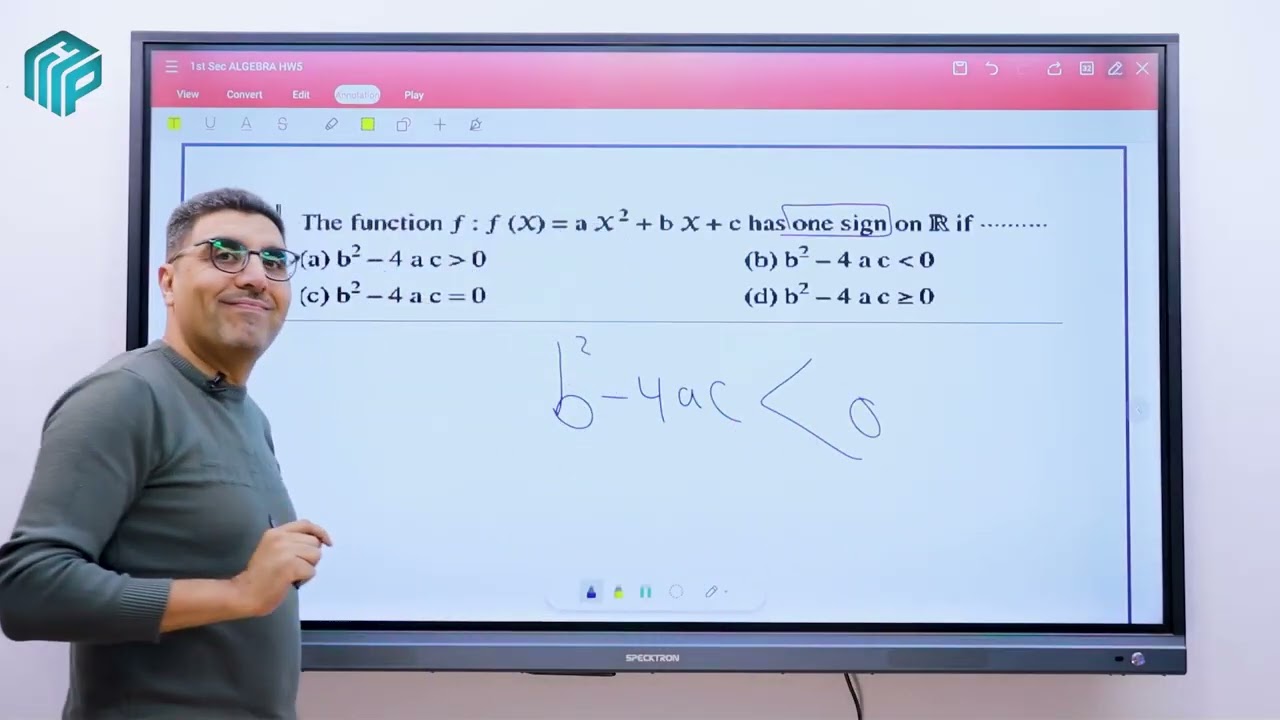 HP
1st Sec ALGEBRA HW5
32
View Convert Edit Annotation Play
T U A S
The function f : f (X) = a X² + b X + c has one sign on ℝ if ..........
(a) b² – 4 a c > 0 (b) b² – 4 a c < 0
(c) b² – 4 a c = 0 (d) b² – 4 a c ≥ 0
b² – 4ac < 0
SPECKTRON